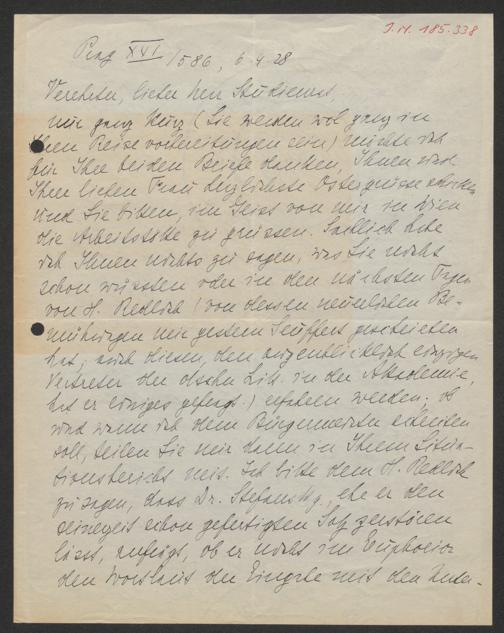 I.N. 185.338
Prag XVI/1586, 6.4.28
Verehrter, lieber Herr Studienrat,
nur ganz kurz (Sie werden wol ganz in
Ihren Reisevorbereitungen sein) möchte ich
für Ihre beiden Briefe danken, Ihnen und
Ihrer lieben Frau herzlichste Ostergrüsse schicken
und Sie bitten, im Geist von mir in Wien
die Arbeitsstätte zu grüssen. Sachlich habe
ich Ihnen nichts zu sagen, was Sie nicht
schon wüssten oder in den nächsten Tagen
von H. Redlich (von dessen neuerlichen Be-
mühungen mir gestern Seuffert geschrieben
hat; auch diesen, den augenblicklich einzigen
Vertreter der dtschn Lit. in der Akademie,
hat er einiges gefragt) erfahren werden; ob
und wann ich dem Bürgermeister schreiben
soll, teilen Sie mir dann in Ihrem Situa-
tionsbericht mit. Ich bitte dem H. Redlich
zu sagen, dass Dr. Stefansky, ehe er den
seinerzeit schon gefertigten Satz zerstören
lässt, anfragt, ob er nicht im Euphorion
den Wortlaut der Eingabe mit den Unter-